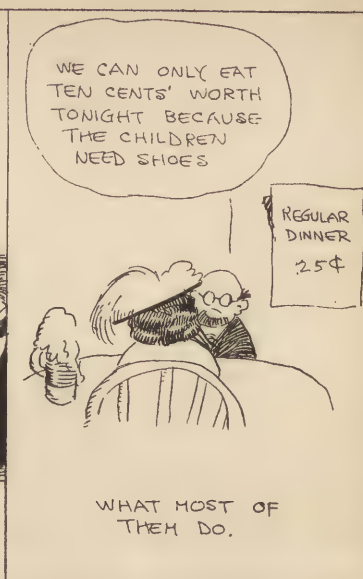 WE CAN ONLY EAT
TEN CENTS' WORTH
TONIGHT BECAUSE
THE CHILDREN
NEED SHOES
REGULAR
DINNER
25¢
WHAT MOST OF
THEM DO.